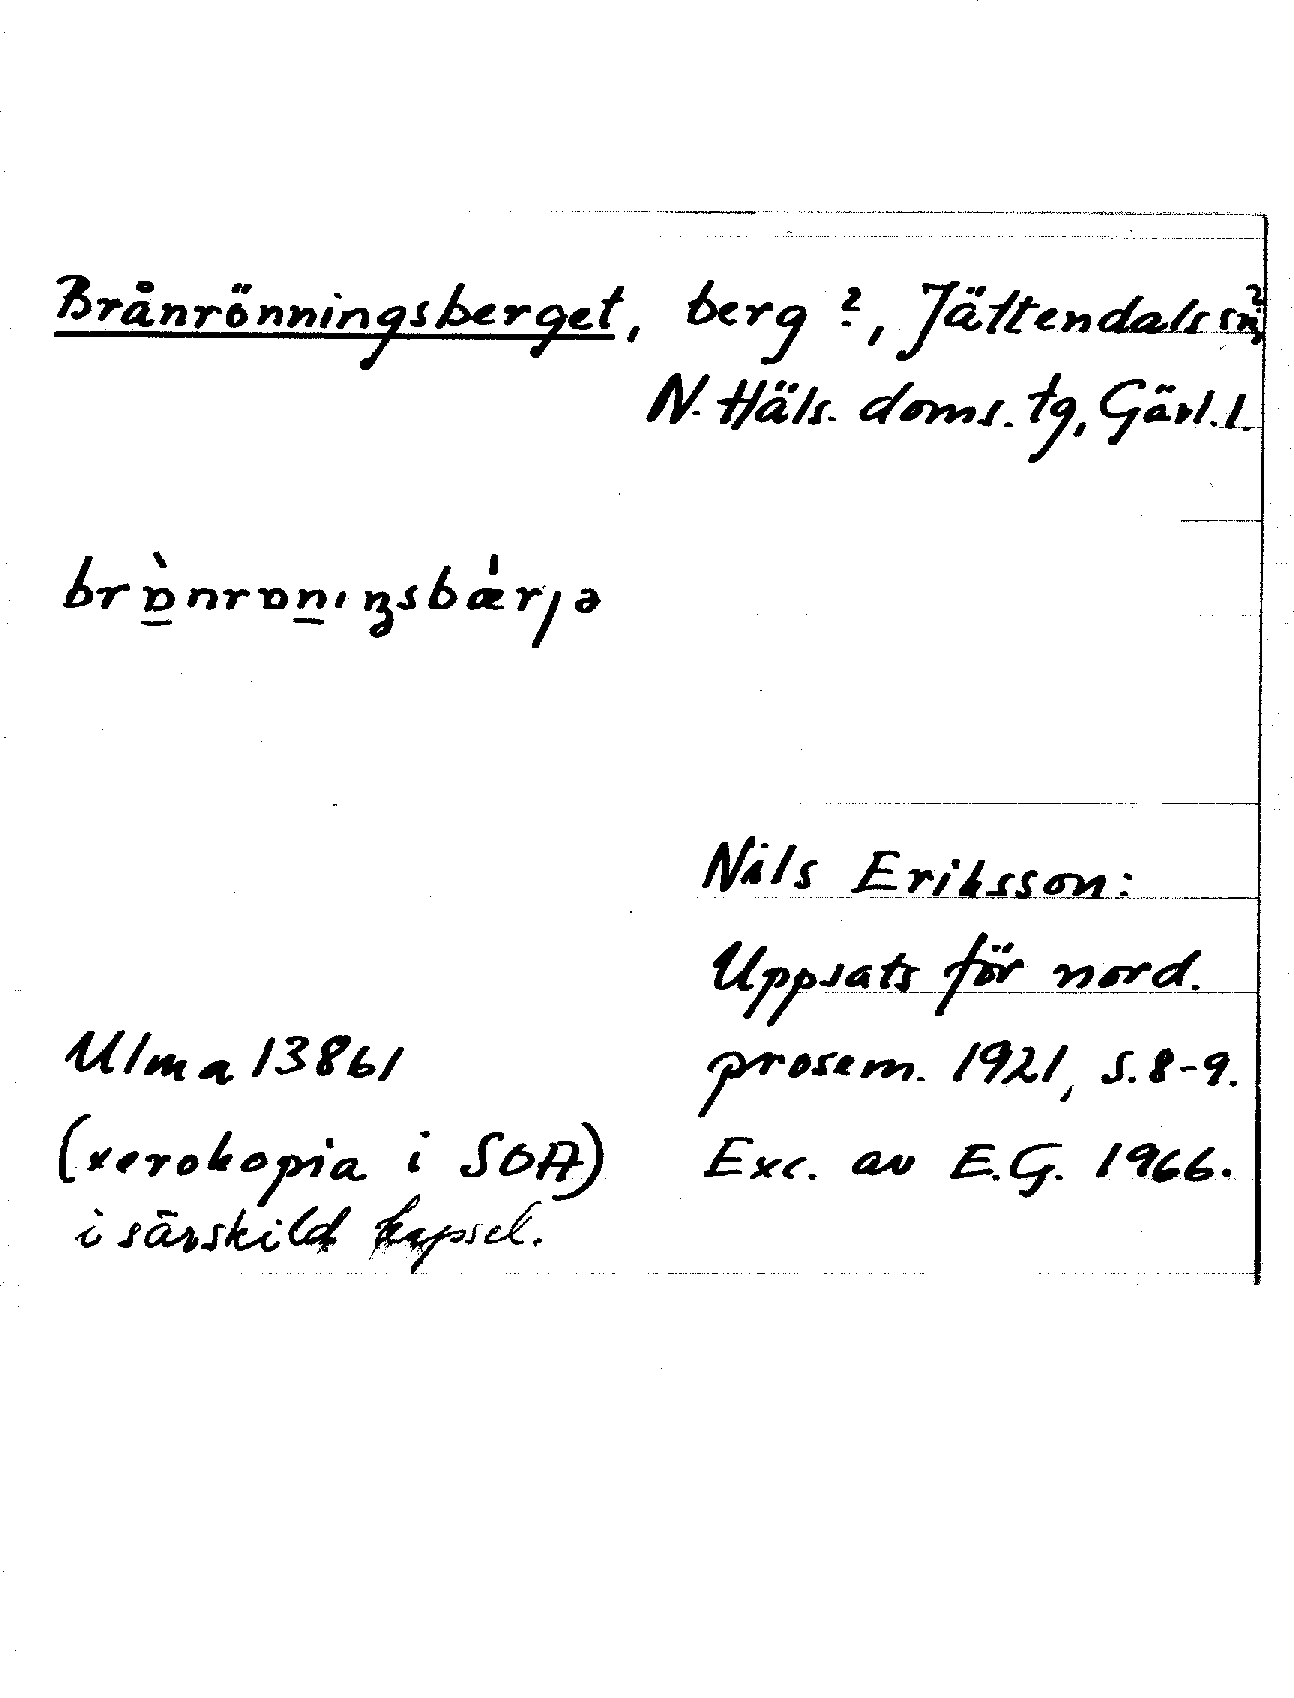 Brånrönningsberget, berg ?, Jättendals sn?,
N. Häls. doms. tg, Gävl. l.
Nils Eriksson:
Uppsats för nord.
Ulma 13861 prosem. 1921, s. 8-9.
(xerokopia i SOA) Exc. av E.G. 1966.
i särskild kapsel.